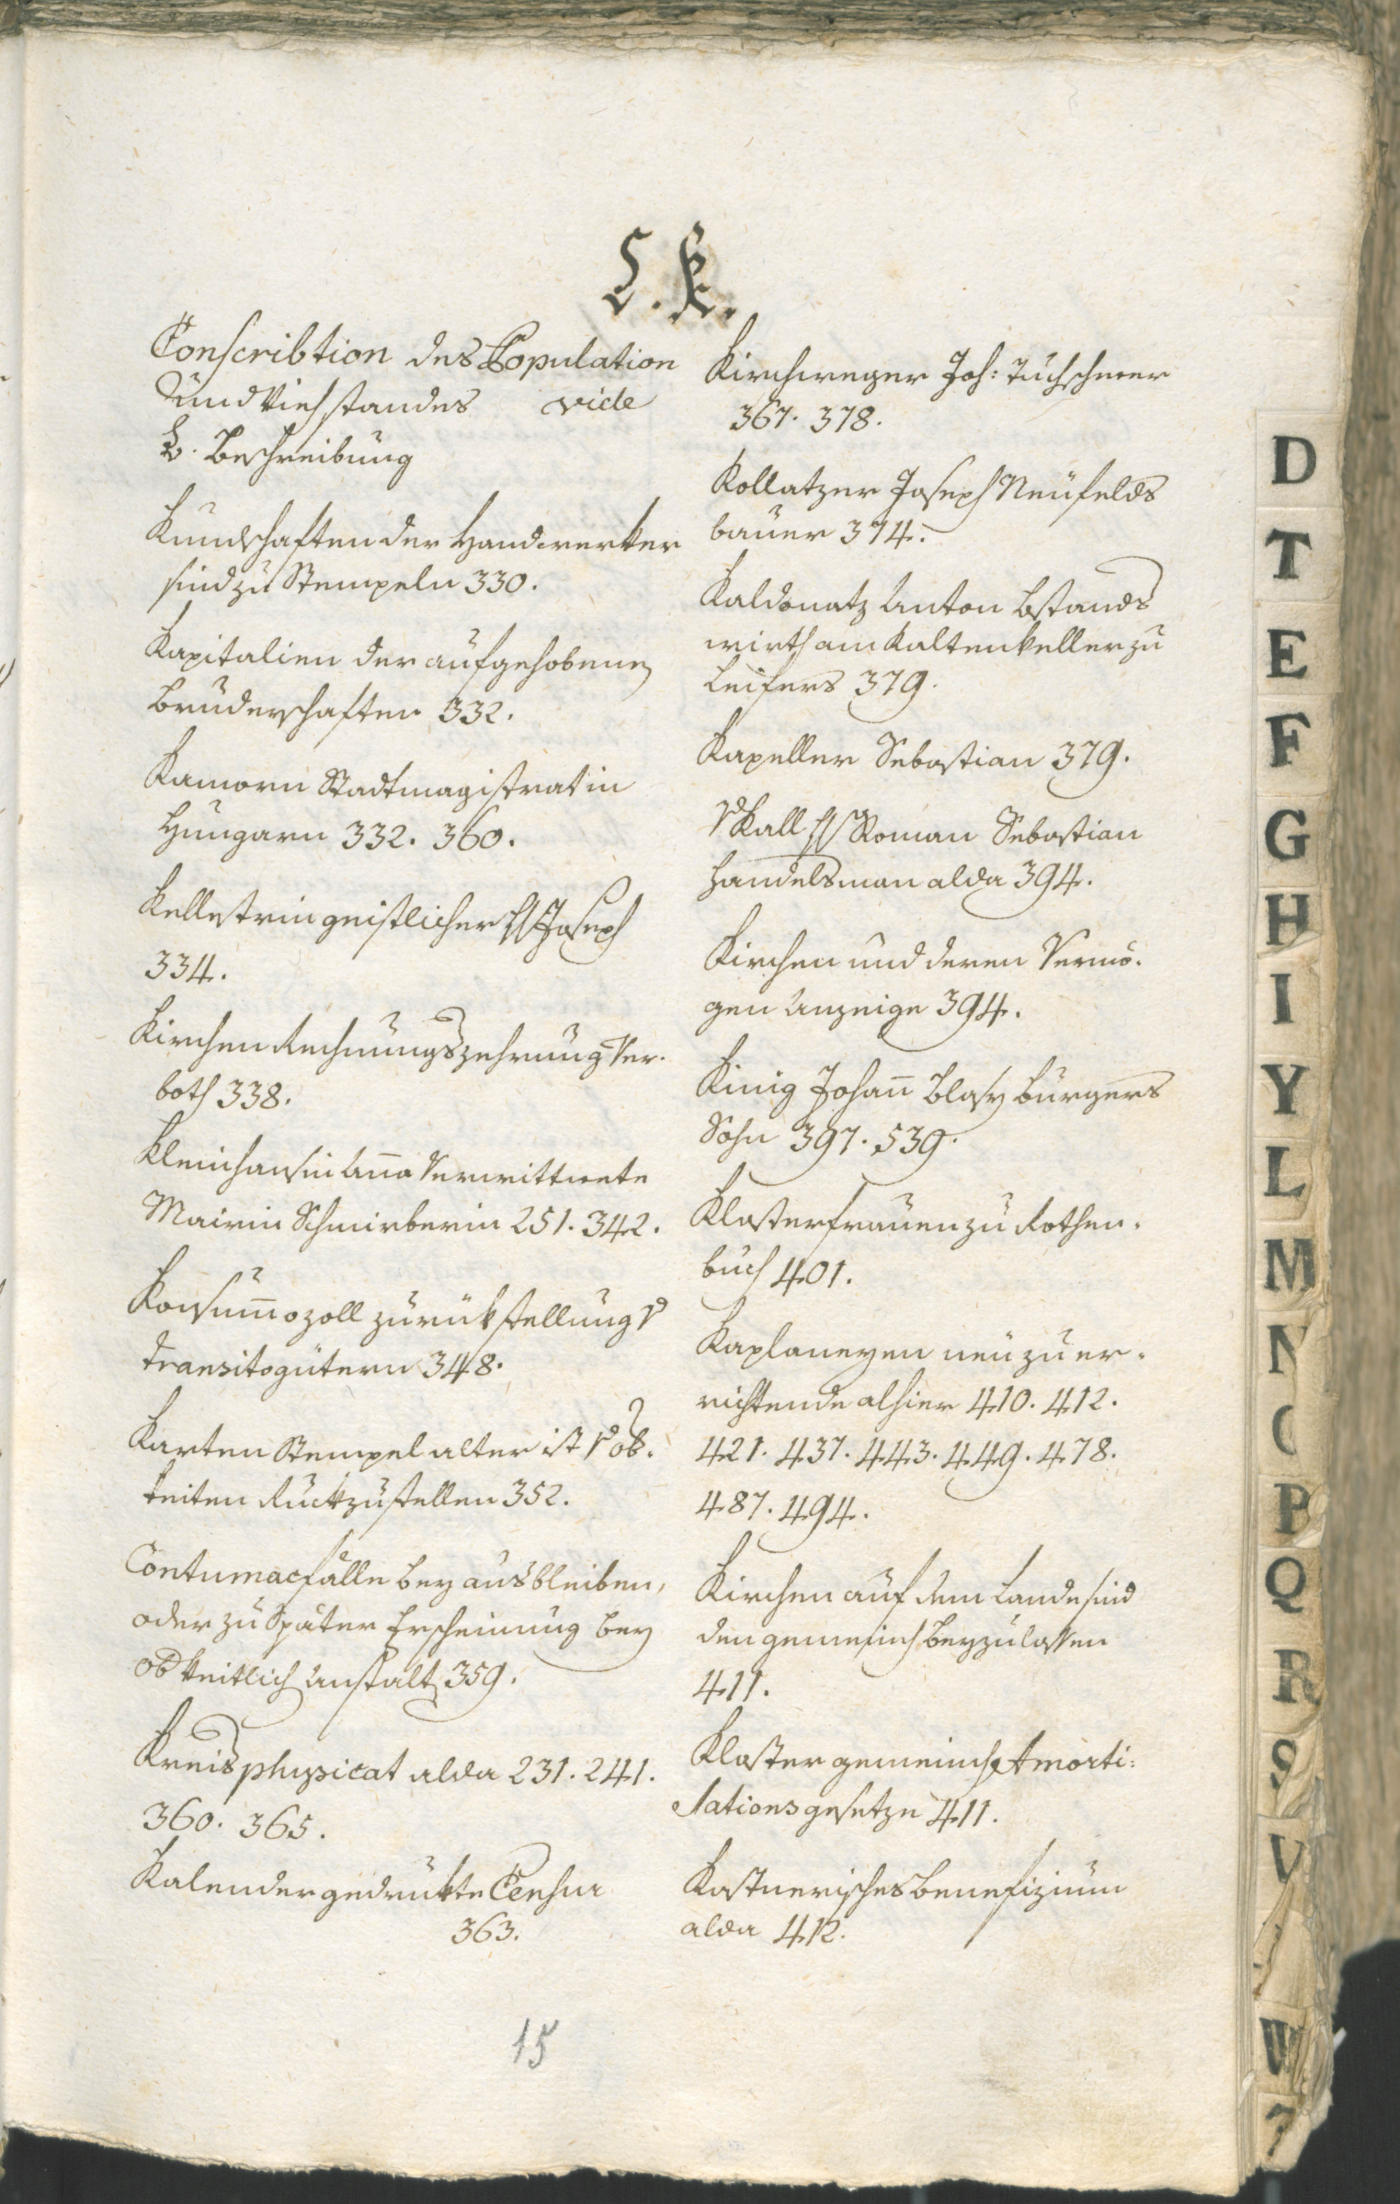 C. K.
Conscribtion des Population
und Viehstandes vide
B. Beschreibung
Kundschaften der Handwerker
sind zu Stempeln 330.
Kapitalien der aufgehobenen
Bruderschaften 332.
Kamorn Stadtmagistrat in
Hungarn 332. 360.
Kellestrin geistlicher H Joseph
334.
Kirchen Rechnungszehrung Ver-
both 338.
Kleinhansin Anna Verwittwete
Mairin Schmirberin 251. 342.
Konsummozoll zurükstellung v
transitogütern 348.
Karten Stempel alter ist v Ob-
keiten Rückzustellen 352.
Contumacfälle bey ausbleiben,
oder zu später Erscheinung bey
Obkeitlich Anstalt 359.
Kreisphysicat alda 231. 241.
360. 365.
Kalender gedrukte Censur
363.
Kirchweger Joh: Tuchscherer
367. 378.
Kollatzer Joseph Neufelds
bauer 374.
Kaldonatz Anton Bstands
wirth am Kaltenkeller zu
Leifers 379.
Kapeller Sebastian 379.
v Kall H Roman Sebastian
Handelsman alda 394.
Kirchen und deren Vermö-
gen Anzeige 394.
Kinig Johann Blasy Burgers
Sohn 397. 539.
Klosterfrauen zu Rothen-
buch 401.
Kaplaneyen neu zu er-
richtende alhier 410. 412.
421. 437. 443. 449. 478.
487. 494.
Kirchen auf dem Lande sind
den gemeinsch beyzulassen
411.
Kloster gemeinsch Amorti-
sationsgesetze 411.
Kostnerisches Benefizium
alda 412.
15
D
T
E
F
G
H
I
Y
L
M
N
P
Q
R
S
V
W